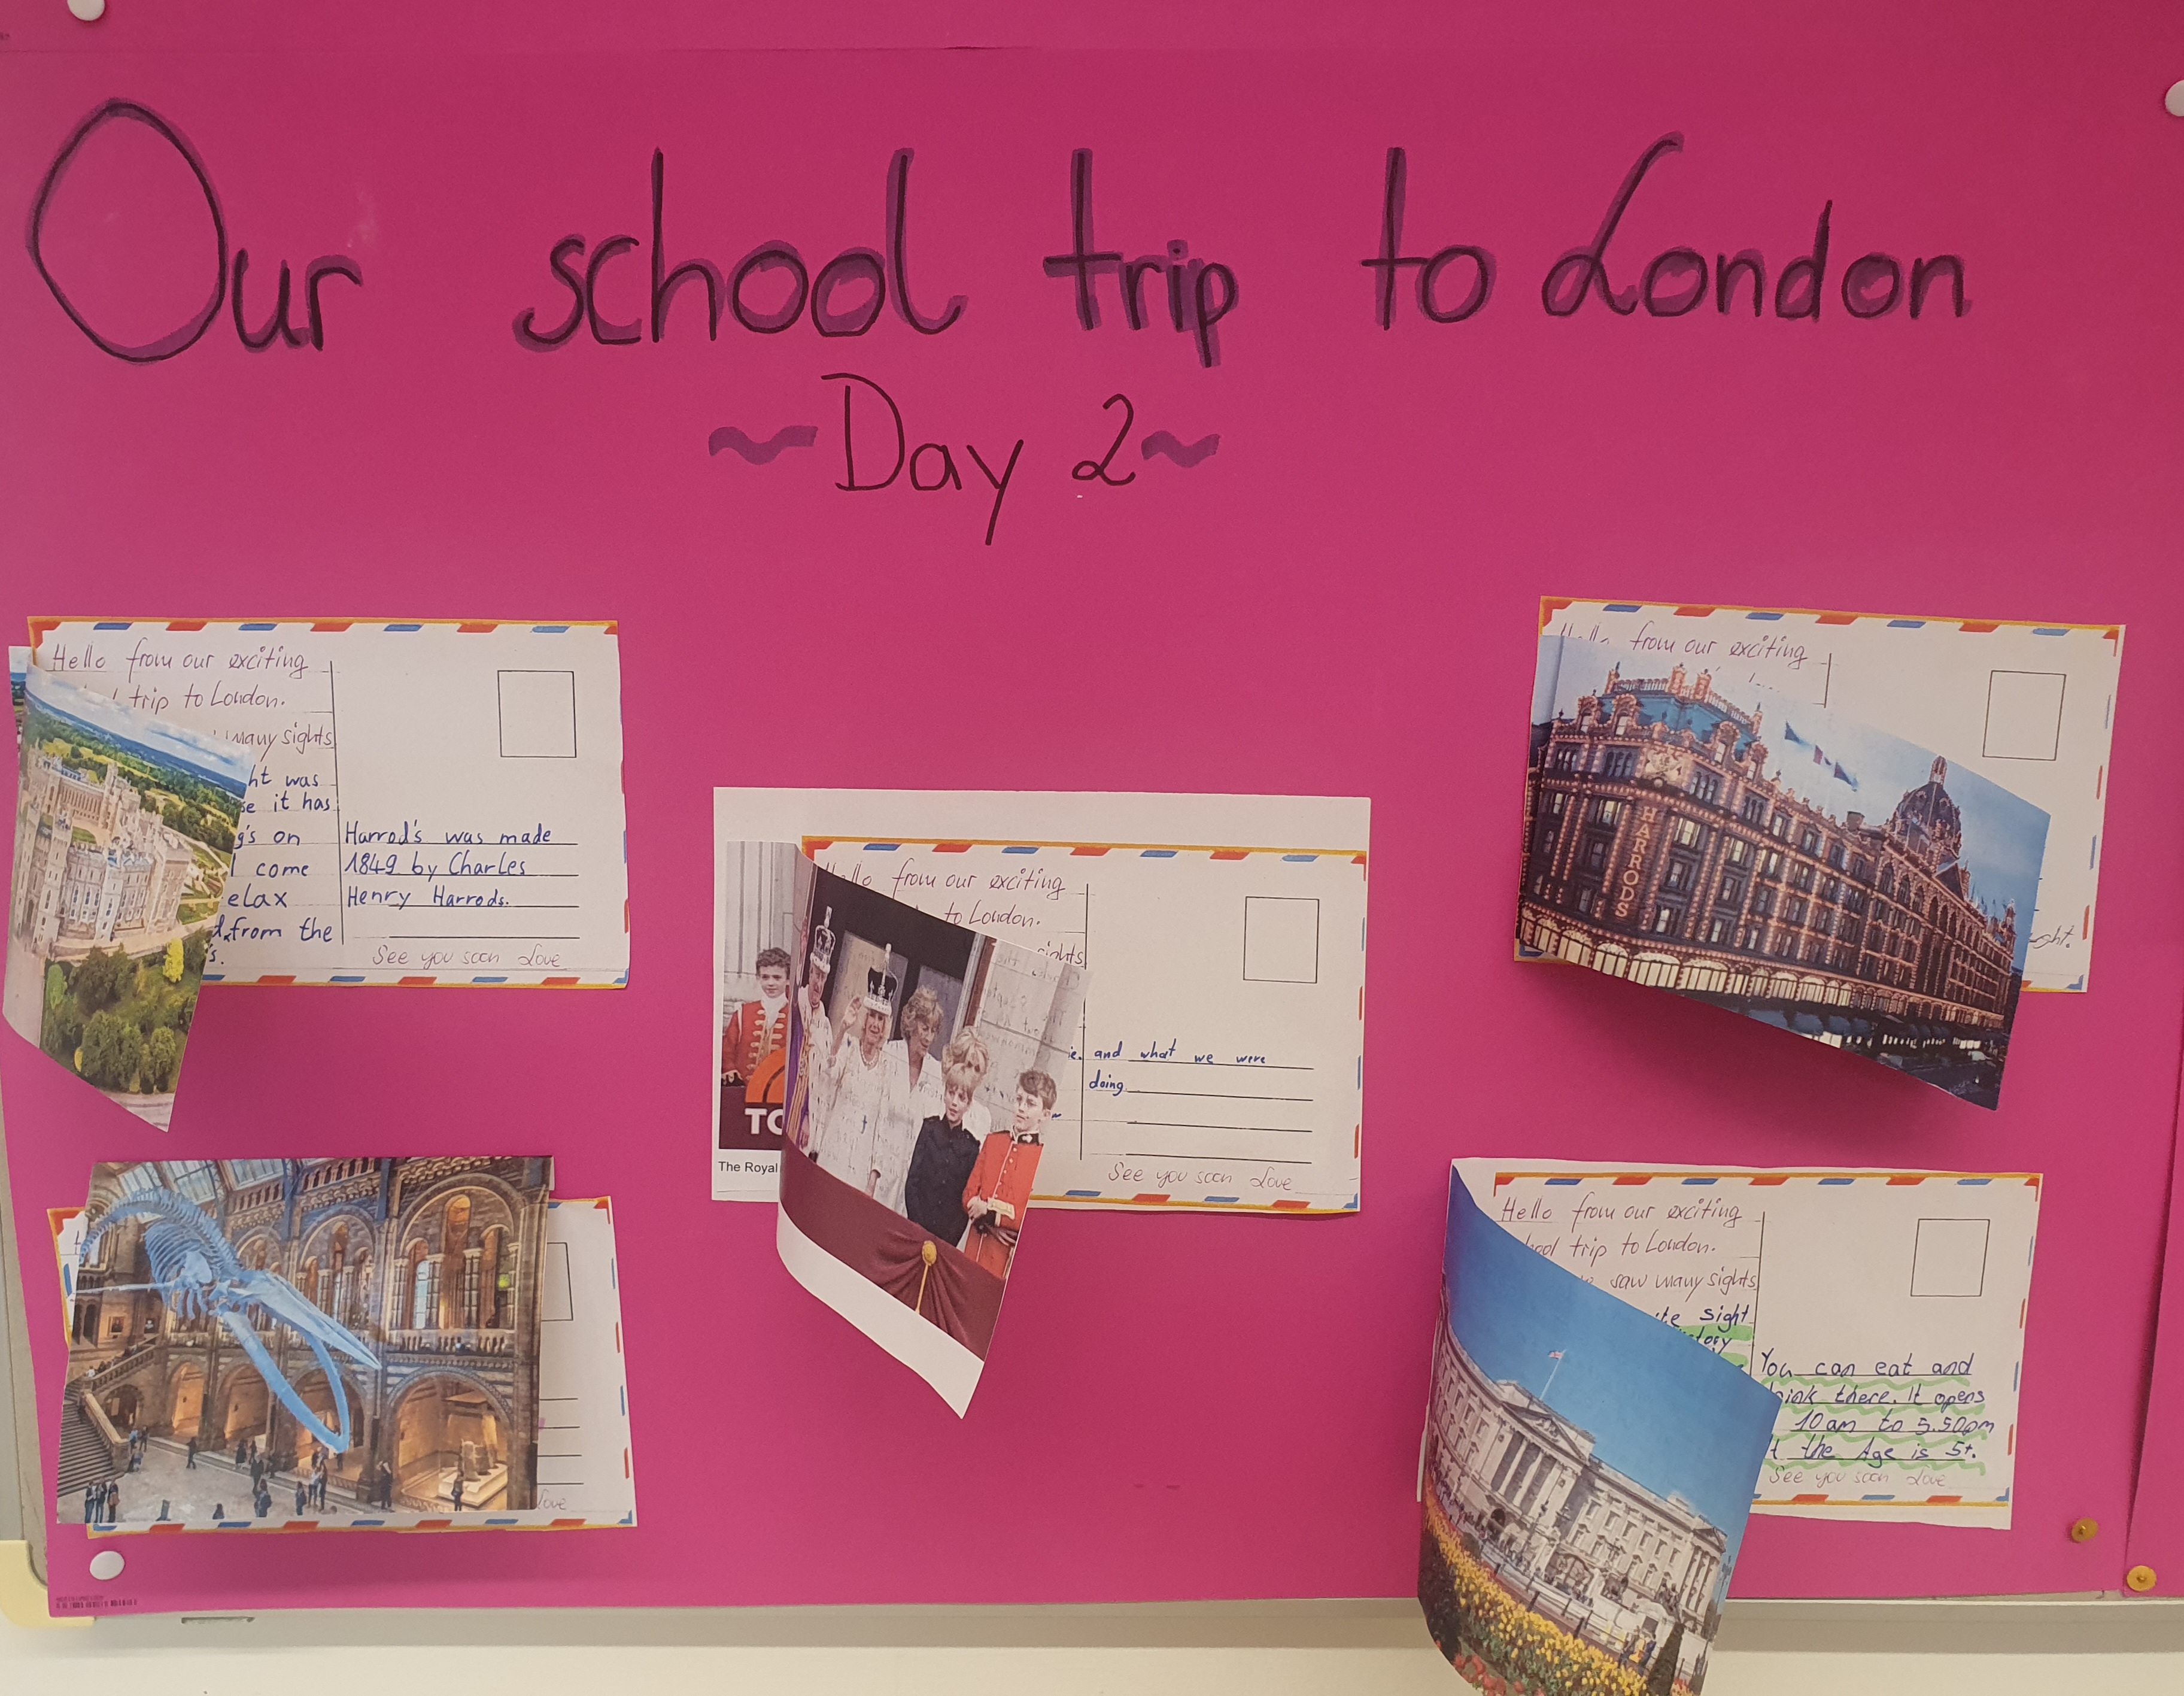 Our school trip to London
~Day 2~
Hello from our exciting
trip to London.
many sights
was
it has
on
come
from the
Harrod's was made
1849 by Charles
Henry Harrods.
See you soon Love
from our exciting
HARRODS
from our exciting
to London.
sights
and what we were
doing.
See you soon Love
The Royal
Love
Hello from our exciting
trip to London.
saw many sights
sight
You can eat and
there. It opens
10 am to 5.50pm
the Age is 5+.
See you soon Love